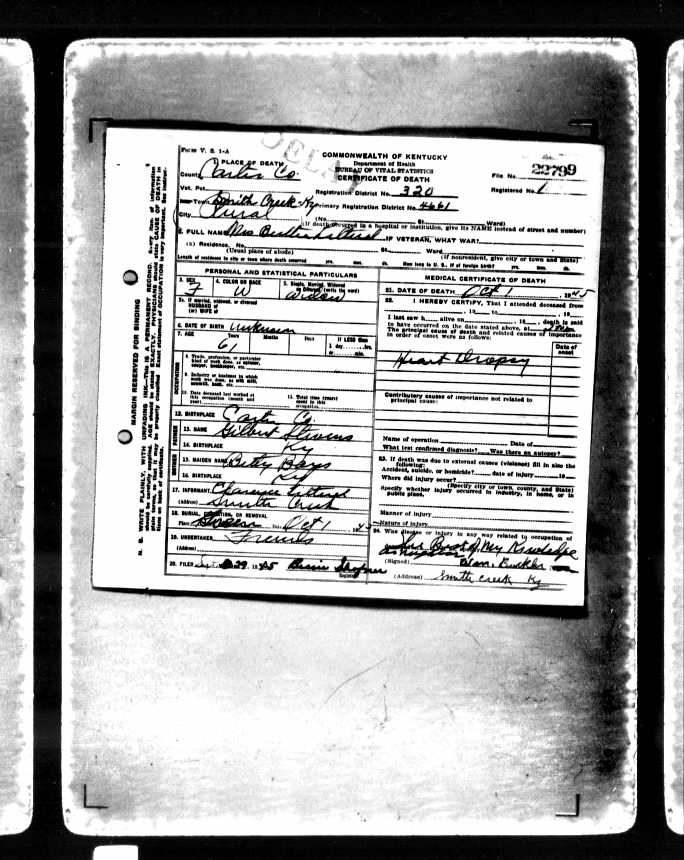 FORM V. S. 1-A
COMMONWEALTH OF KENTUCKY
Department of Health
BUREAU OF VITAL STATISTICS
CERTIFICATE OF DEATH
File No. 22799
Registered No. 1
PLACE OF DEATH
County Carter Co.
Vot. Pct.
Registration District No. 320
Town Smith Creek Ky
Primary Registration District No. 4661
City Rural
(No. St. Ward)
(If death occurred in a hospital or institution, give its NAME instead of street and number)
2. FULL NAME Mrs
IF VETERAN, WHAT WAR?
(a) Residence. No. St. Ward.
(Usual place of abode) (If nonresident, give city or town and State)
Length of residence in city or town where death occurred yrs. mos. ds. How long in U. S., if of foreign birth? yrs. mos. ds.
PERSONAL AND STATISTICAL PARTICULARS
3. SEX F
4. COLOR OR RACE W
5. Single, Married, Widowed or Divorced (write the word) Widow
5a. If married, widowed, or divorced
HUSBAND of
(or) WIFE of
6. DATE OF BIRTH Unknown
7. AGE Years Months Days If LESS than
1 day hrs.
or min.
61
OCCUPATION
8. Trade, profession, or particular
kind of work done, as spinner,
sawyer, bookkeeper, etc.
9. Industry or business in which
work was done, as silk mill,
sawmill, bank, etc.
10. Date deceased last worked at
this occupation (month and
year)
11. Total time (years)
spent in this
occupation
12. BIRTHPLACE Carter Co.
FATHER
13. NAME Gilbert Stevens
14. BIRTHPLACE Ky
MOTHER
15. MAIDEN NAME Betty Bays
16. BIRTHPLACE Ky
17. INFORMANT Clarence
(Address) Smith Creek
18. BURIAL, CREMATION, OR REMOVAL
Place Date Oct 1 1945
19. UNDERTAKER Friends
(Address)
20. FILED 29, 1945
Registrar
MEDICAL CERTIFICATE OF DEATH
21. DATE OF DEATH Oct 1, 1945
22. I HEREBY CERTIFY, That I attended deceased from
, 19 to , 19
I last saw h alive on , 19 , death is said
to have occurred on the date stated above, at
The principal cause of death and related causes of importance
in order of onset were as follows:
Date of
onset
Heart Dropsy
Contributory causes of importance not related to
principal cause:
Name of operation Date of
What test confirmed diagnosis? Was there an autopsy?
23. If death was due to external causes (violence) fill in also the
following:
Accident, suicide, or homicide? date of injury 19
Where did injury occur?
(Specify city or town, county, and State)
Specify whether injury occurred in industry, in home, or in
public place.
Manner of injury
Nature of injury
24. Was disease or injury in any way related to occupation of
Best of My Knowledge
(Signed)
(Address) Smith Creek Ky
MARGIN RESERVED FOR BINDING
N. B. WRITE PLAINLY, WITH UNFADING INK—This is A PERMANENT RECORD. Every item of information
should be carefully supplied. AGE should be stated EXACTLY. PHYSICIANS should state CAUSE OF DEATH in
plain terms, so that it may be properly classified. Exact statement of OCCUPATION is very important. See instructions
on back of certificate.